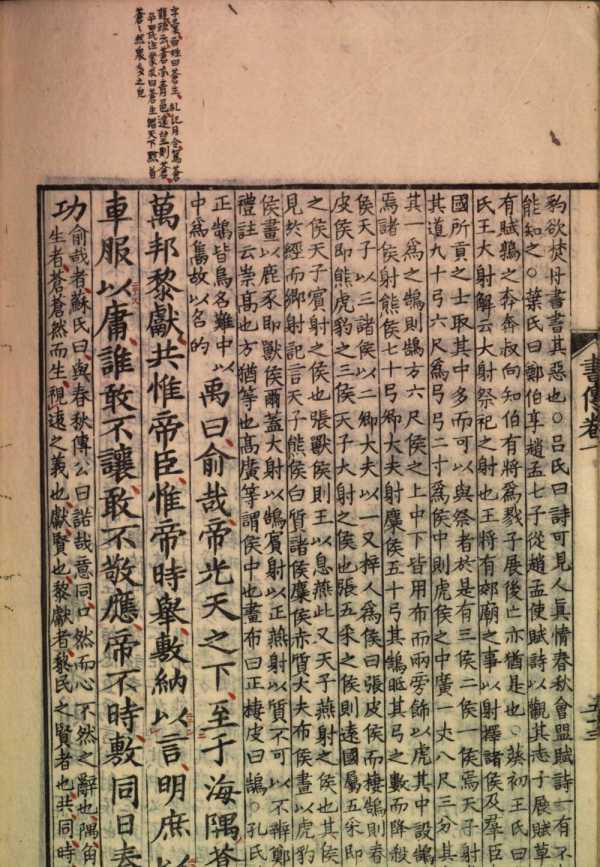 字彙百姓曰蒼生礼記月令駕蒼
龍疏云蒼亦青色遠望則蒼
平田氏注蒙求曰蒼生猶天下黔首
蒼〻然衆多之皃
書傳卷一
五十三
豹欲焚丹書書其惡也○呂氏曰詩可見人眞情春秋會盟賦詩一有不
能知之○葉氏曰鄭伯享趙孟七子從趙孟使賦詩以觀其志子展賦草
有賦鶉之奔奔叔向知伯有將爲戮子展後亡亦猶是也○葵初王氏曰
氏王大射解云大射祭祀之射也王將有郊廟之事以射擇諸侯及羣臣
國所貢之士取其中多而可以與祭者於是有三侯二侯一侯焉天子射
其道九十弓六尺爲弓弓二寸爲侯中則虎侯之中廣一丈八尺三分其
其一爲之鵠則鵠方六尺侯之上中下皆用布而兩旁飾以虎其中設鵠
焉諸侯射熊侯七十弓卿大夫射麋侯五十弓其鵠眂其弓之數而降殺
侯天子以三諸侯以二卿大夫以一又梓人爲侯曰張皮侯而棲鵠則春
皮侯卽熊虎豹之三侯天子大射之侯也張五采之侯則遠國屬五采卽
之侯天子賓射之侯也張獸侯則王以息燕此又天子燕射之侯也其侯
見於經而鄉射記言天子熊侯白質諸侯麋侯赤質大夫布侯畫以虎豹
侯畫以鹿豕卽獸侯爾蓋大射以鵠賓射以正燕射以質不可以不辨鄭
禮註云崇高也方猶等也高廣等謂侯中也畫布曰正棲皮曰鵠○孔氏
正鵠皆鳥名難中以
中爲雋故以名的
禹曰俞哉帝光天之下至于海隅蒼
萬邦黎獻共惟帝臣惟帝時舉敷納以言明庶以
車服以庸誰敢不讓敢不敬應帝不時敷同日奏
功
俞哉者蘇氏曰與春秋傳公曰諾哉意同口然而心不然之辭也隅角
生者蒼蒼然而生視遠之義也獻賢也黎獻者黎民之賢者也共同時